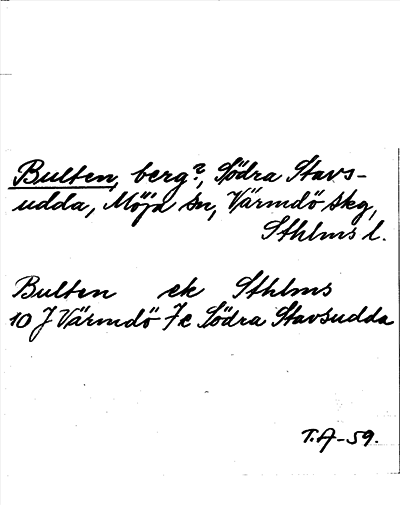 Bulten, berg?, Södra Stavs-
udda, Möja sn, Värmdö skg,
Sthlms l.
Bulten ek Sthlms
10 J Värmdö 7c Södra Stavsudda
T.A-59.